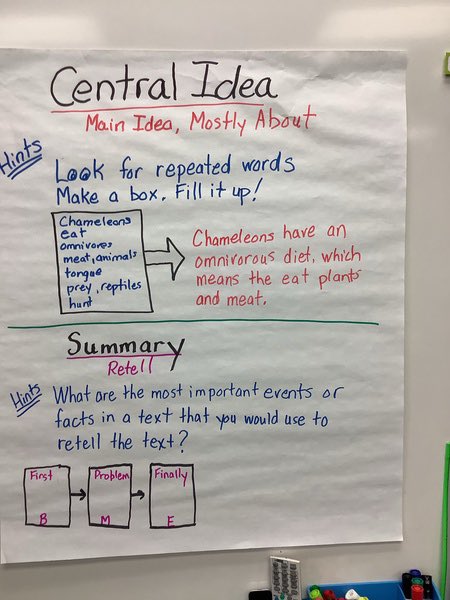 Central Idea
Main Idea, Mostly About
Hints
Look for repeated words
Make a box. Fill it up!
Chameleons
eat
omnivores
meat, animals
tongue
prey, reptiles
hunt
Chameleons have an
omnivorous diet, which
means the eat plants
and meat.
Summary
Retell
Hints
What are the most important events or
facts in a text that you would use to
retell the text?
First
B
Problem
M
Finally
E